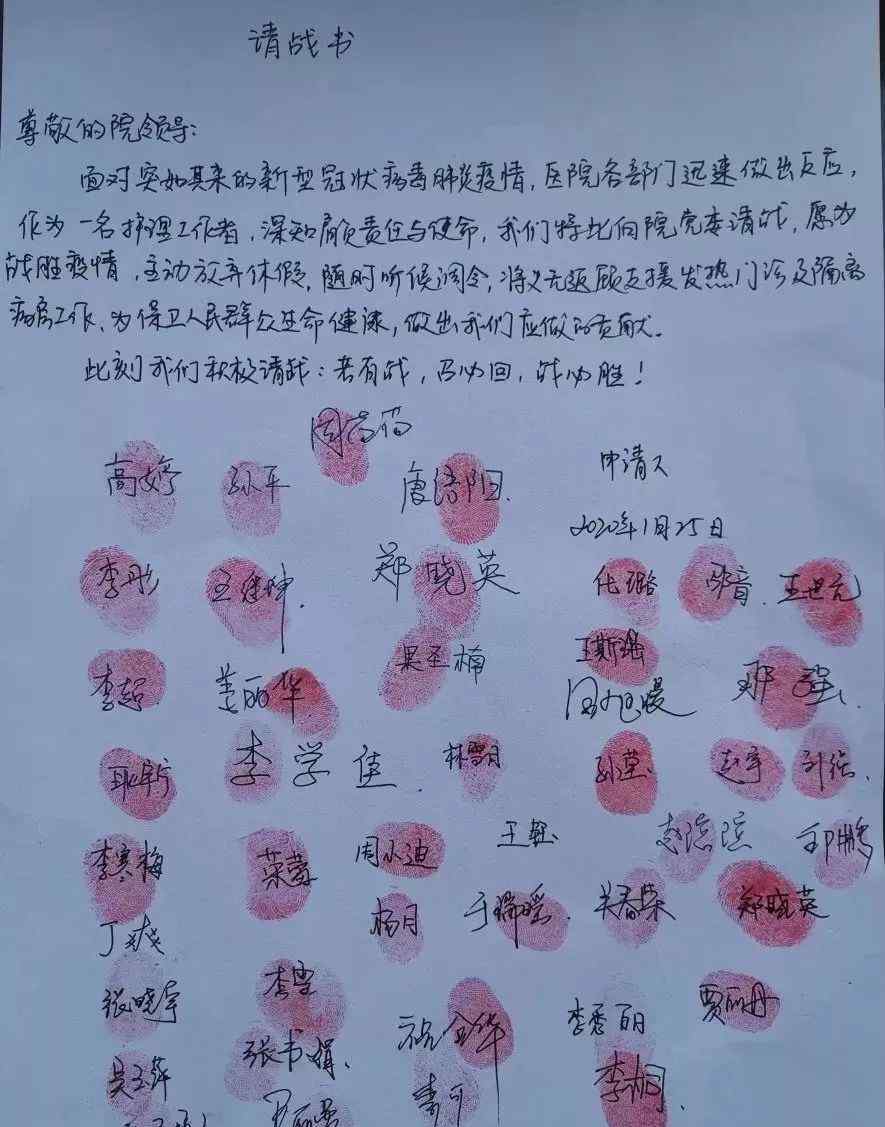 请战书
尊敬的院领导：
面对突如其来的新型冠状病毒肺炎疫情，医院各部门迅速做出反应，
作为一名护理工作者，深知肩负责任与使命，我们特此向院党委请战，愿为
战胜疫情，主动放弃休假，随时听候调令，将义无返顾支援发热门诊及隔离
病房工作、为保卫人民群众生命健康，做出我们应做的贡献。
此刻我们积极请战：若有战，召必回，战必胜！
高婷 孙平 唐绪阳 申请人
2020年1月25日
李彤 郑晓英 化璐 王世元
李超 姜丽华 吴圣楠 王斯瑶
李学佳 林雪月 孙莹 赵宇
李寒梅 菜蓉 周小迪 王钰 赵滨滨
丁爽 杨月 于瑞瑶 关春荣 郑晓英
张晓宇 李雪 李秀丽 贾丽丹
吴玉萍 张书娟 李桐